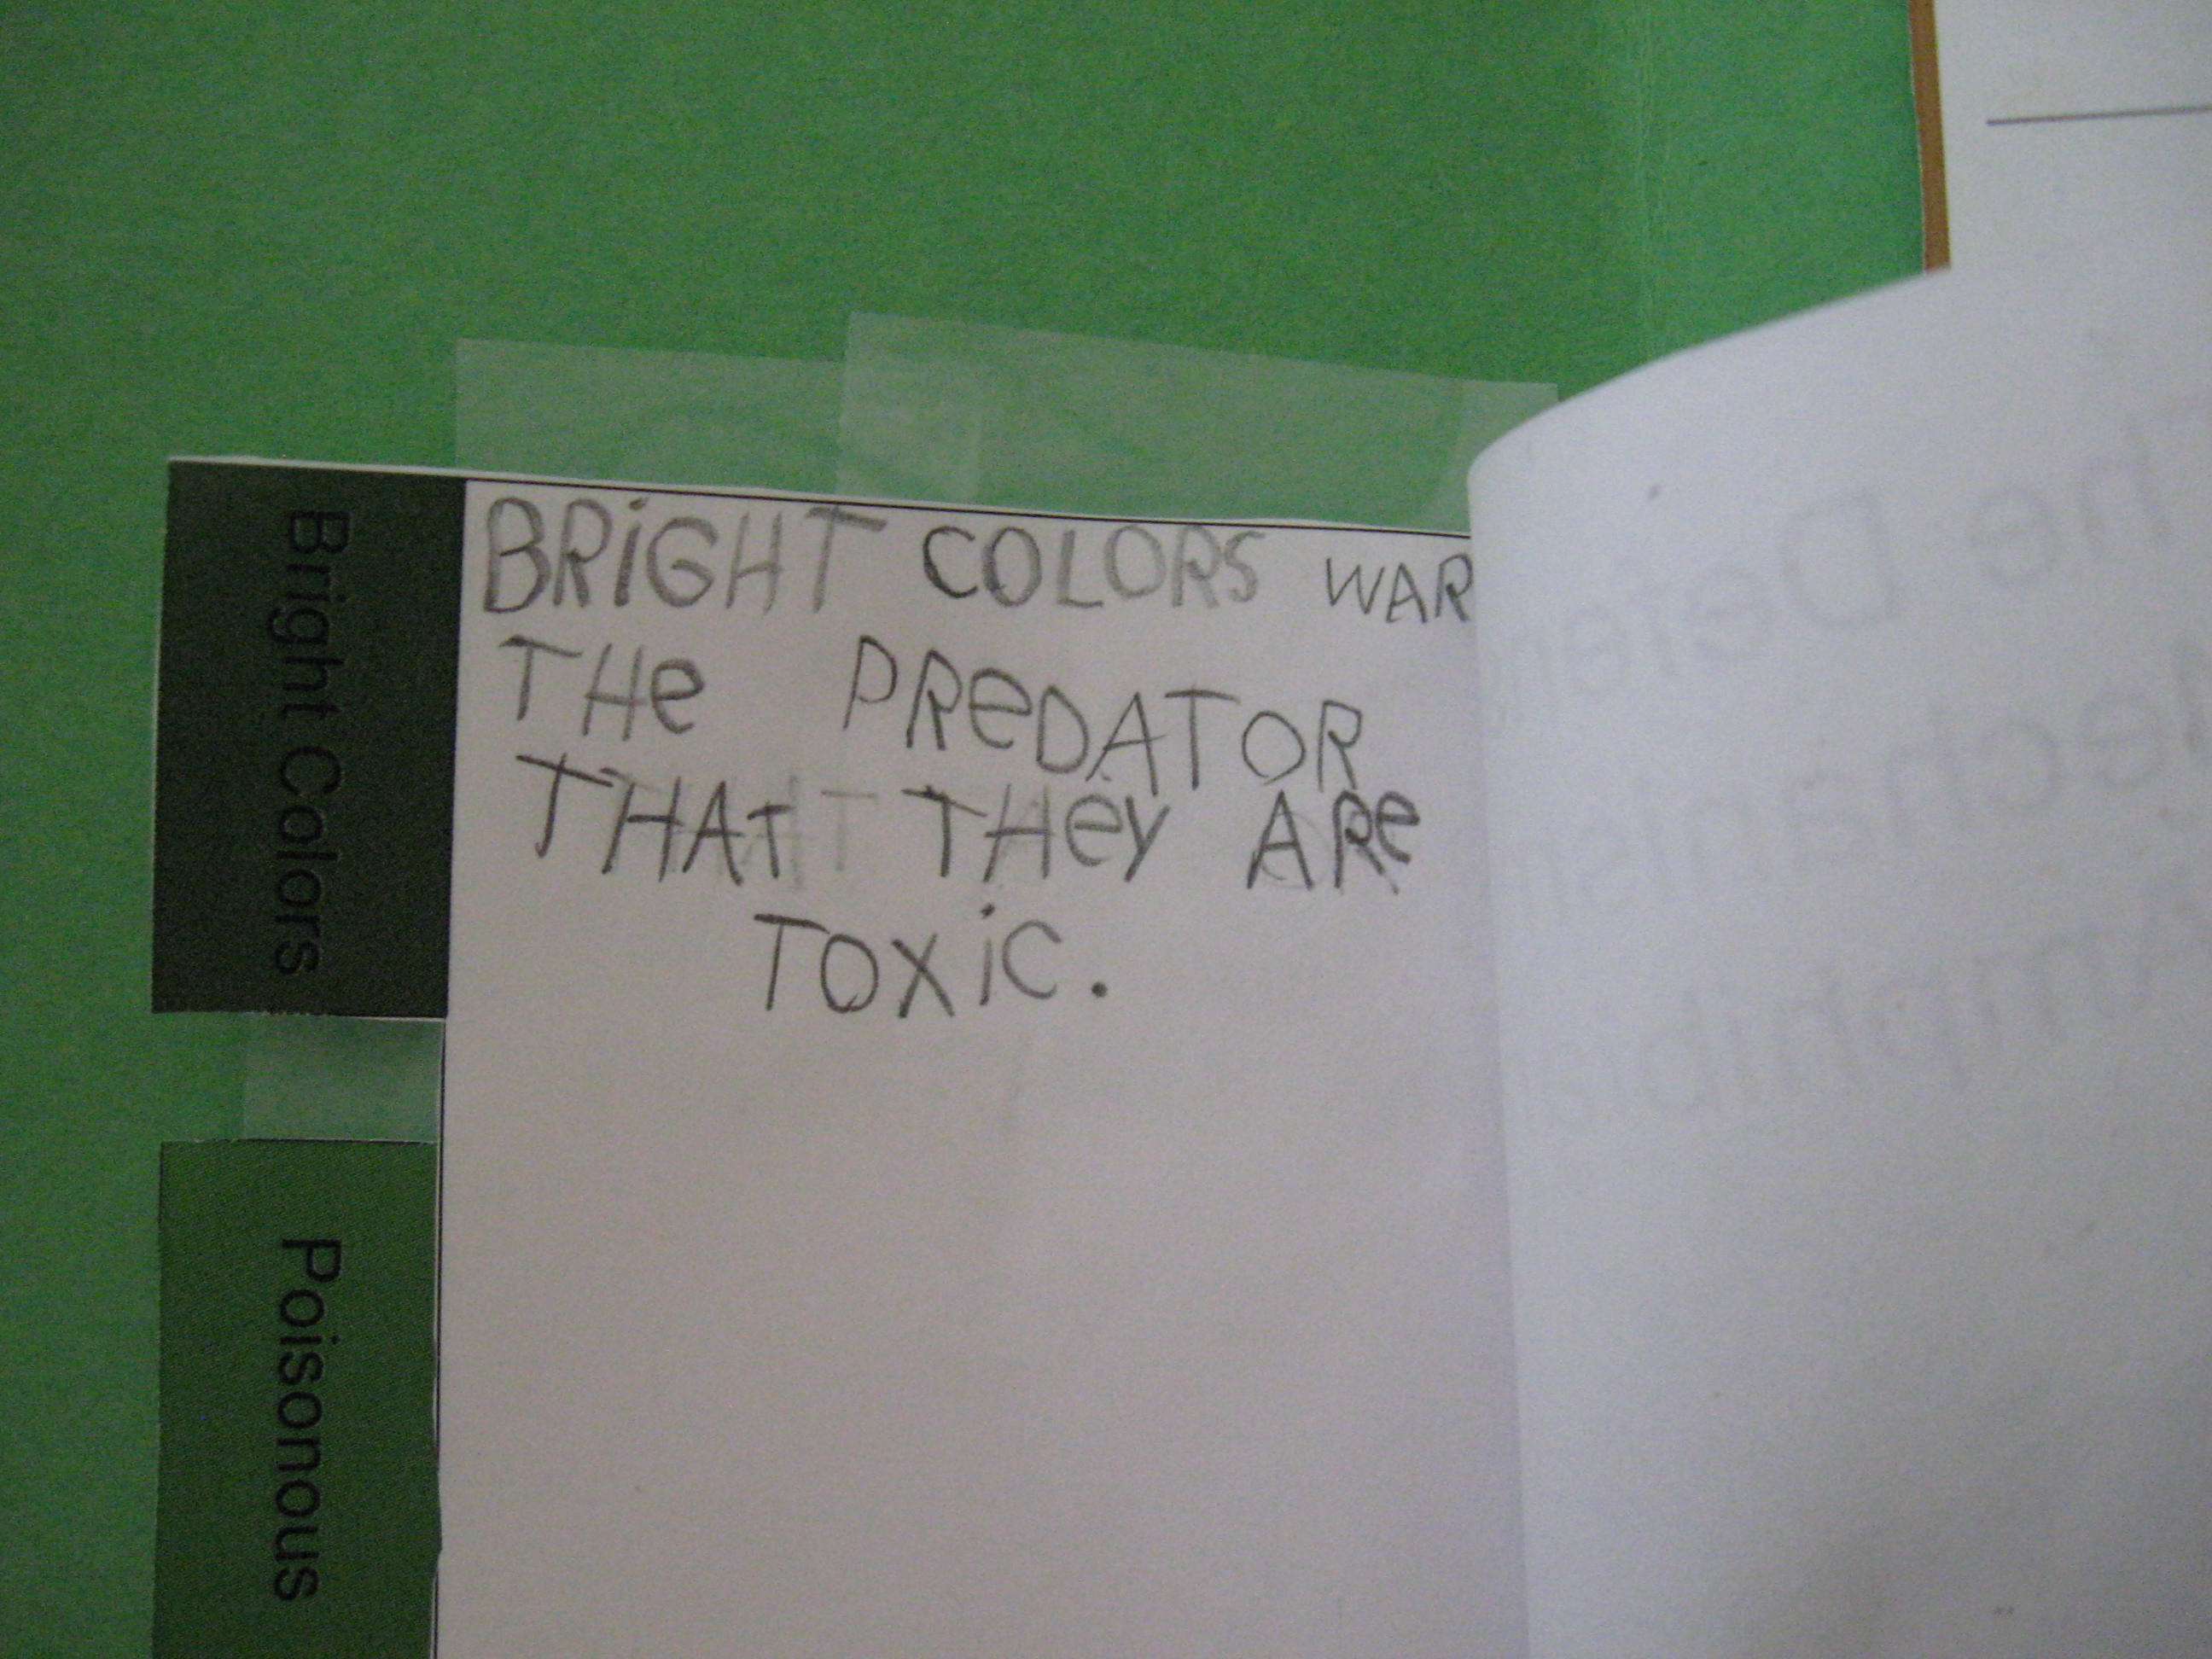 BRiGHT COLORS WAR
THe PReDATOR
THAT THey ARe
TOXiC.
Bright Colors
Poisonous